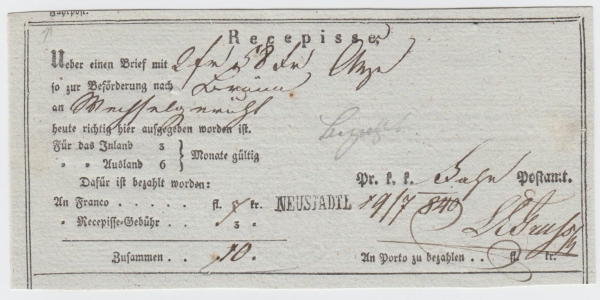 Fahrpost.
Recepisse
Ueber einen Brief mit 2 fr 58 Xr
so zur Beförderung nach Brünn
an Wechselgericht
heute richtig hier aufgegeben worden ist.
Für das Inland 3
" " Ausland 6 } Monate gültig
Dafür ist bezahlt worden:
An Franco . . . fl. 7 kr.
" Recepisse-Gebühr . . 3 "
Zusammen . . 10.
Pr. k. k. Postamt.
NEUSTADTL 19/7 840
An Porto zu bezahlen . . fl. kr.